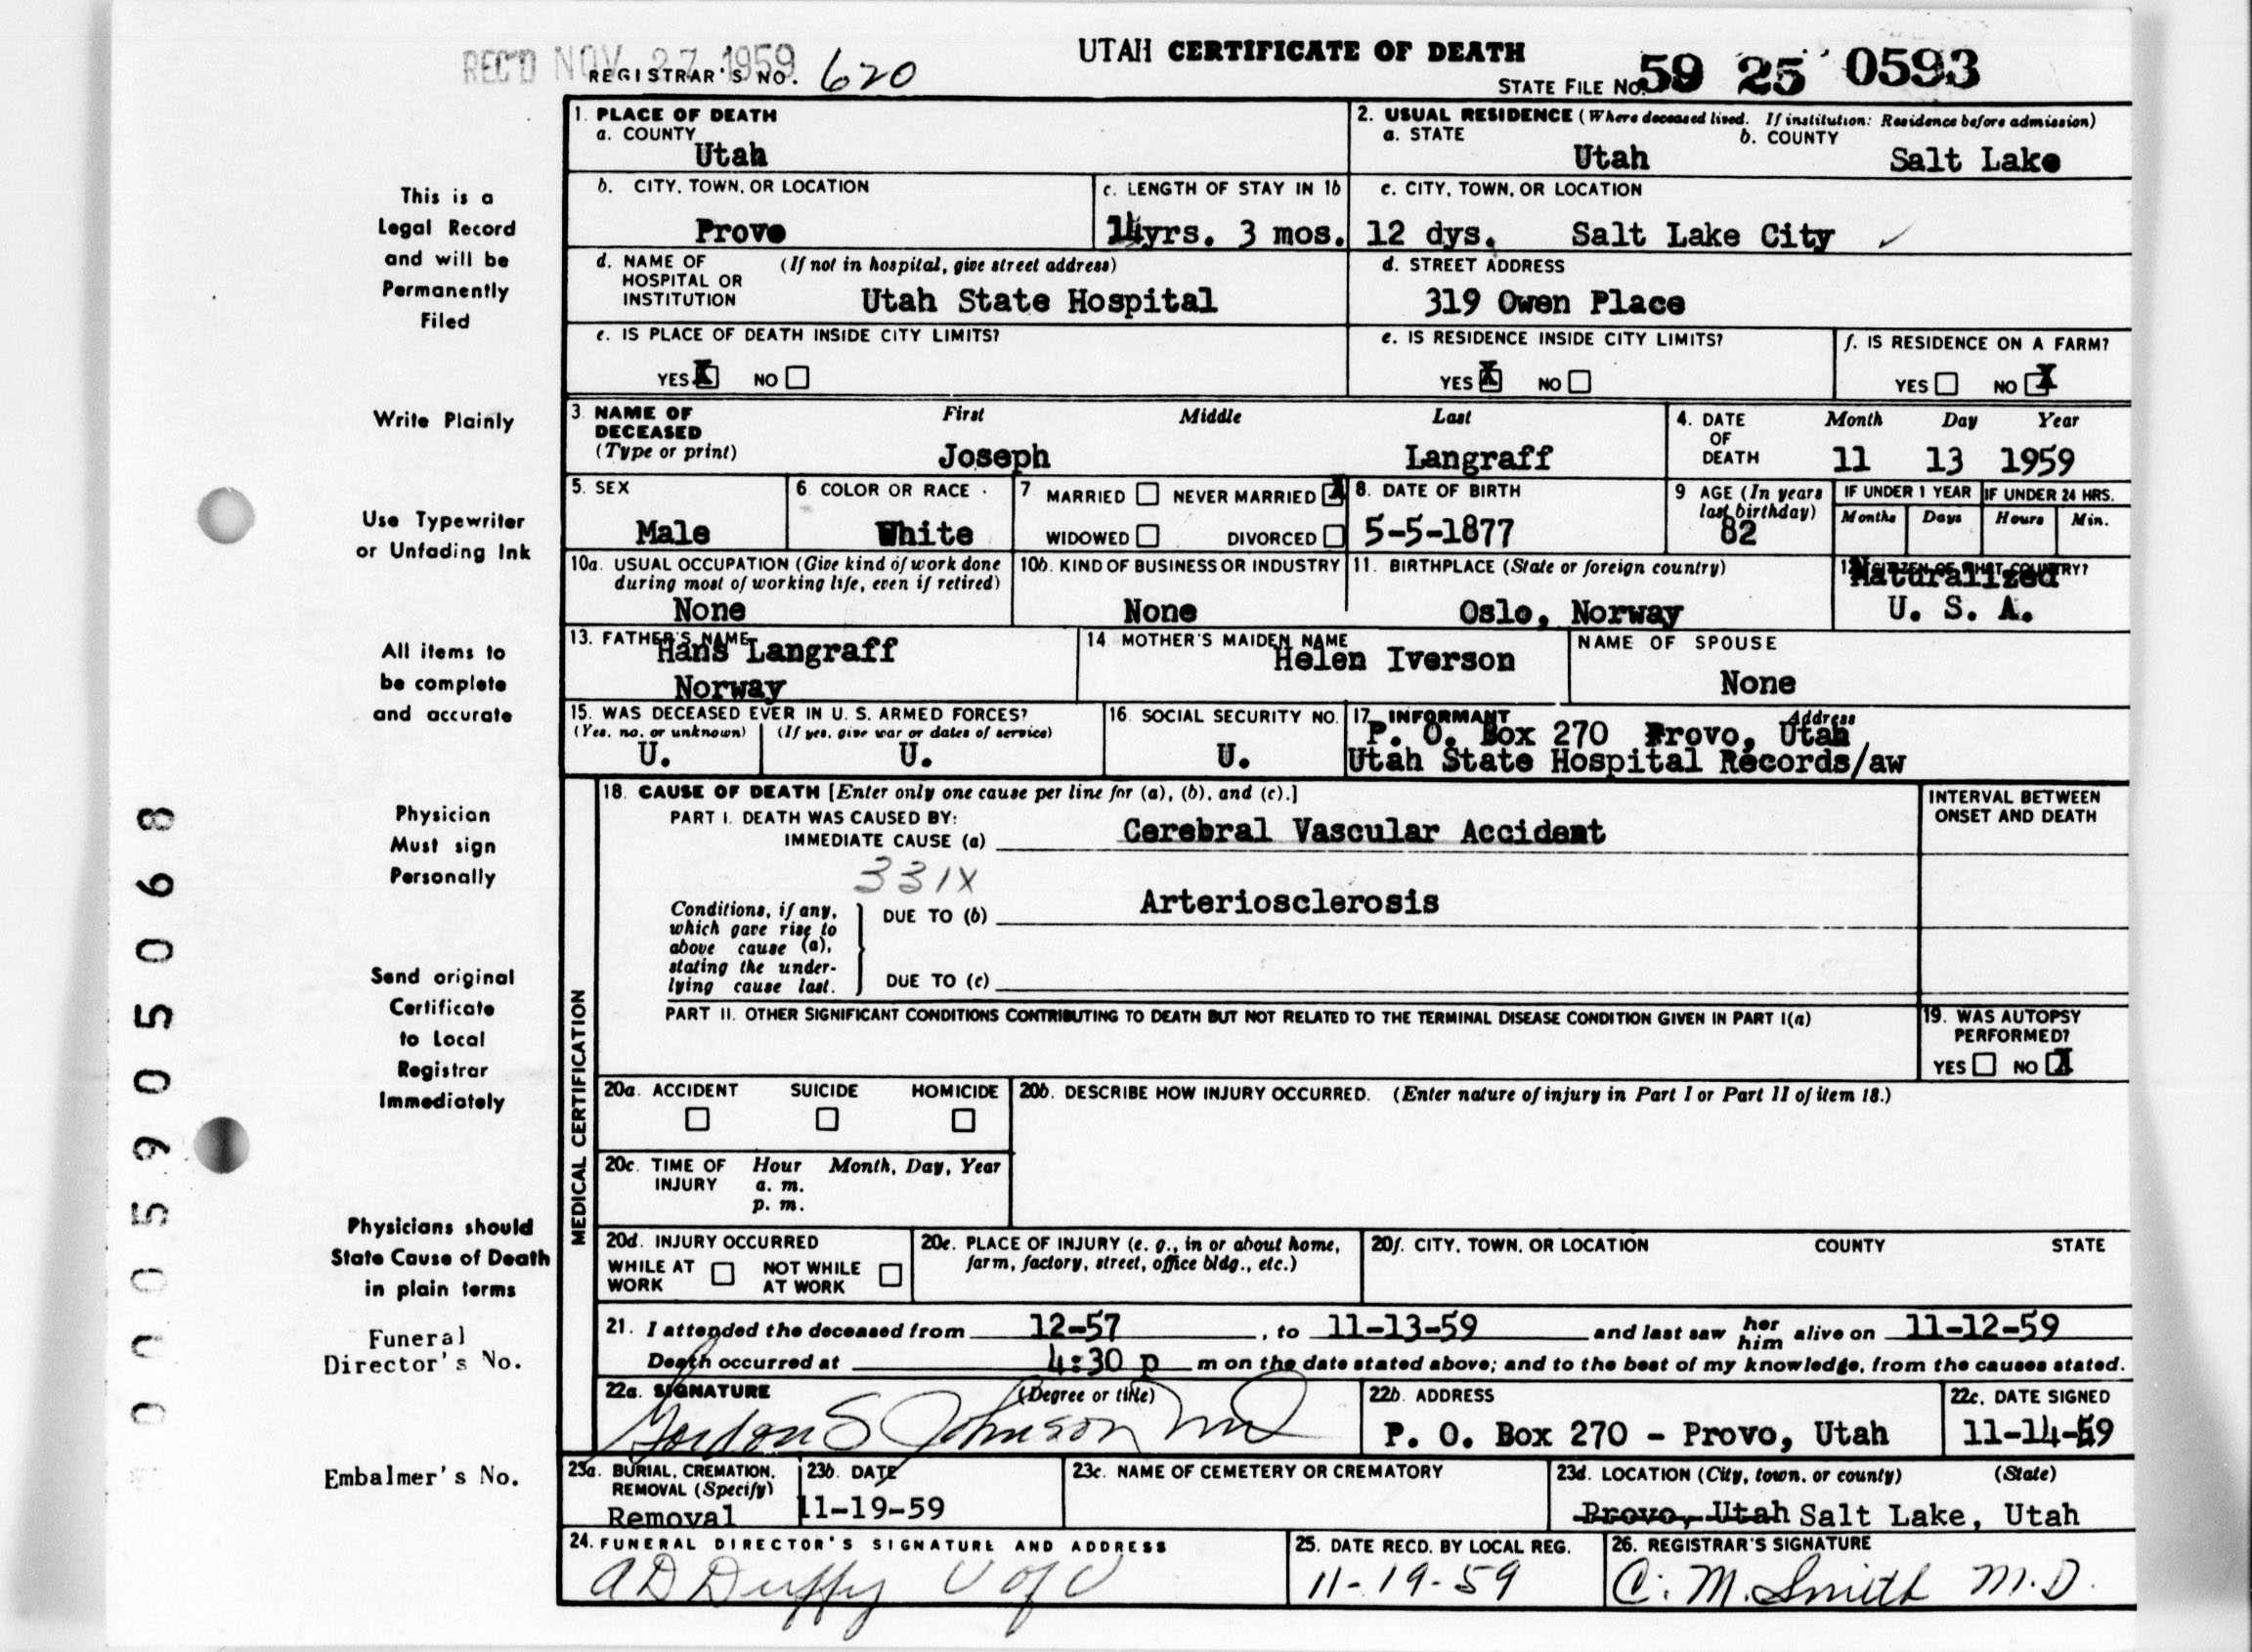 REC'D NOV 27 1959
REGISTRAR'S NO. 620
UTAH CERTIFICATE OF DEATH
STATE FILE NO. 59 25 0593
1. PLACE OF DEATH
a. COUNTY
Utah
2. USUAL RESIDENCE (Where deceased lived. If institution: Residence before admission)
a. STATE
Utah
b. COUNTY
Salt Lake
b. CITY, TOWN, OR LOCATION
Provo
c. LENGTH OF STAY IN 1b
14yrs. 3 mos. 12 dys.
c. CITY, TOWN, OR LOCATION
Salt Lake City
d. NAME OF HOSPITAL OR INSTITUTION
(If not in hospital, give street address)
Utah State Hospital
d. STREET ADDRESS
319 Owen Place
e. IS PLACE OF DEATH INSIDE CITY LIMITS?
YES X NO
e. IS RESIDENCE INSIDE CITY LIMITS?
YES X NO
f. IS RESIDENCE ON A FARM?
YES NO X
3. NAME OF DECEASED
(Type or print)
First Middle Last
Joseph Langraff
4. DATE OF DEATH
Month Day Year
11 13 1959
5. SEX
Male
6. COLOR OR RACE
White
7. MARRIED NEVER MARRIED X
WIDOWED DIVORCED
8. DATE OF BIRTH
5-5-1877
9. AGE (In years last birthday)
82
IF UNDER 1 YEAR
Months Days
IF UNDER 24 HRS.
Hours Min.
10a. USUAL OCCUPATION (Give kind of work done during most of working life, even if retired)
None
10b. KIND OF BUSINESS OR INDUSTRY
None
11. BIRTHPLACE (State or foreign country)
Oslo, Norway
12. CITIZEN OF WHAT COUNTRY?
Naturalized
U. S. A.
13. FATHER'S NAME
Hans Langraff
Norway
14. MOTHER'S MAIDEN NAME
Helen Iverson
NAME OF SPOUSE
None
15. WAS DECEASED EVER IN U. S. ARMED FORCES?
(Yes, no, or unknown) (If yes, give war or dates of service)
U. U.
16. SOCIAL SECURITY NO.
U.
17. INFORMANT Address
P. O. Box 270 Provo, Utah
Utah State Hospital Records/aw
MEDICAL CERTIFICATION
18. CAUSE OF DEATH [Enter only one cause per line for (a), (b), and (c).]
INTERVAL BETWEEN ONSET AND DEATH
PART I. DEATH WAS CAUSED BY:
IMMEDIATE CAUSE (a) Cerebral Vascular Accident
331X
Conditions, if any, which gave rise to above cause (a), stating the underlying cause last.
DUE TO (b) Arteriosclerosis
DUE TO (c)
PART II. OTHER SIGNIFICANT CONDITIONS CONTRIBUTING TO DEATH BUT NOT RELATED TO THE TERMINAL DISEASE CONDITION GIVEN IN PART I(a)
19. WAS AUTOPSY PERFORMED?
YES NO X
20a. ACCIDENT SUICIDE HOMICIDE
20b. DESCRIBE HOW INJURY OCCURRED. (Enter nature of injury in Part I or Part II of item 18.)
20c. TIME OF INJURY
Hour Month, Day, Year
a. m.
p. m.
20d. INJURY OCCURRED
WHILE AT WORK NOT WHILE AT WORK
20e. PLACE OF INJURY (e. g., in or about home, farm, factory, street, office bldg., etc.)
20f. CITY, TOWN, OR LOCATION COUNTY STATE
21. I attended the deceased from 12-57, to 11-13-59 and last saw her him alive on 11-12-59
Death occurred at 4:30 p m on the date stated above; and to the best of my knowledge, from the causes stated.
22a. SIGNATURE (Degree or title)
Gordon S Johnson MD
22b. ADDRESS
P. O. Box 270 - Provo, Utah
22c. DATE SIGNED
11-14-59
23a. BURIAL, CREMATION, REMOVAL (Specify)
Removal
23b. DATE
11-19-59
23c. NAME OF CEMETERY OR CREMATORY
23d. LOCATION (City, town, or county) (State)
Provo, Utah Salt Lake, Utah
24. FUNERAL DIRECTOR'S SIGNATURE AND ADDRESS
A D Duffy U of U
25. DATE RECD. BY LOCAL REG.
11-19-59
26. REGISTRAR'S SIGNATURE
C. M. Smith M.D.
This is a
Legal Record
and will be
Permanently
Filed
Write Plainly
Use Typewriter
or Unfading Ink
All items to
be complete
and accurate
Physician
Must sign
Personally
Send original
Certificate
to Local
Registrar
Immediately
Physicians should
State Cause of Death
in plain terms
Funeral
Director's No.
Embalmer's No.
0005905068